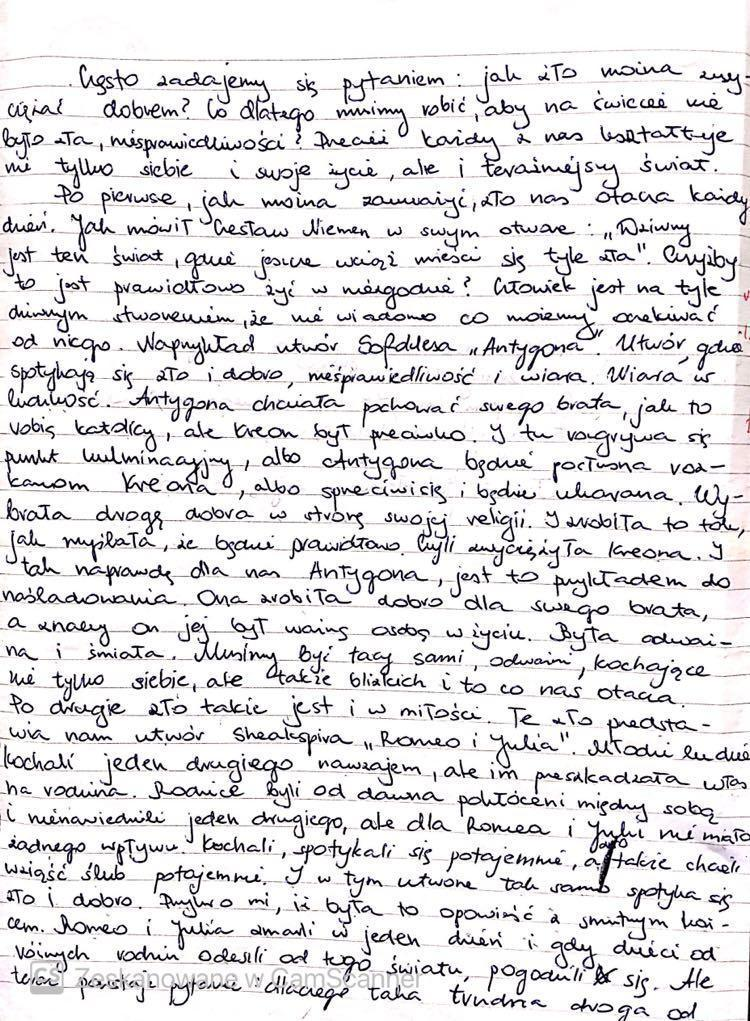 Często zadajemy się pytaniem: jak zło można zwy-
ciężać dobrem? Co dlatego musimy robić, aby na świecie nie
było zła, niesprawiedliwości? Przecież każdy z nas kształtuje
nie tylko siebie i swoje życie, ale i teraźniejszy świat.
Po pierwsze, jak można zauważyć, zło nas otacza każdy
dzień. Jak mówił Czesław Niemen w swym utworze: „Dziwny
jest ten świat, gdzie jeszcze wciąż mieści się tyle zła". Czyżby
to jest prawidłowo żyć w niezgodzie? Człowiek jest na tyle
dziwnym stworzeniem, że nie wiadomo co możemy oczekiwać
od niego. Naprzykład utwór Sofoklesa „Antygona". Utwór, gdzie
spotykają się zło i dobro, niesprawiedliwość i wiara. Wiara w
ludzkość. Antygona chciała pochować swego brata, jak to
robią katolicy, ale Kreon był przeciwko. I tu rozgrywa się
punkt kulminacyjny, albo Antygona będzie posłuszna roz-
kazom Kreona, albo sprzeciwi się i będzie ukarana. Wy-
brała drogę dobra w stronę swojej religii. I zrobiła to tak,
jak myślała, że będzie prawidłowo. Czyli zwyciężyła Kreona. I
tak naprawdę dla nas Antygona, jest to przykładem do
naśladowania. Ona zrobiła dobro dla swego brata,
a znaczy on jej był ważną osobą w życiu. Była odważ-
na i śmiała. Musimy być tacy sami, odważni, kochające
nie tylko siebie, ale także bliskich i to co nas otacza.
Po drugie zło także jest i w miłości. Te zło przedsta-
wia nam utwór Sheakspira „Romeo i Julia". Młodzi ludzie
kochali jeden drugiego nawzajem, ale im przeszkadzała włas
na rodzina. Rodzice byli od dawna pokłóceni między sobą
i nienawidzili jeden drugiego, ale dla Romea i Julii nie miało
żadnego wpływu. Kochali, spotykali się potajemnie, a także chcieli
wziąść ślub potajemnie. I w tym utworze tak samo spotyka się
zło i dobro. Przykro mi, iż była to opowieść z smutnym koń-
cem. Romeo i Julia zmarli w jeden dzień i gdy dzieci od
różnych rodzin odeszli od tego światu, pogodzili się. Ale
teraz pytanie: dlaczego taka trudna droga od
Zeskanowane w CamScanner